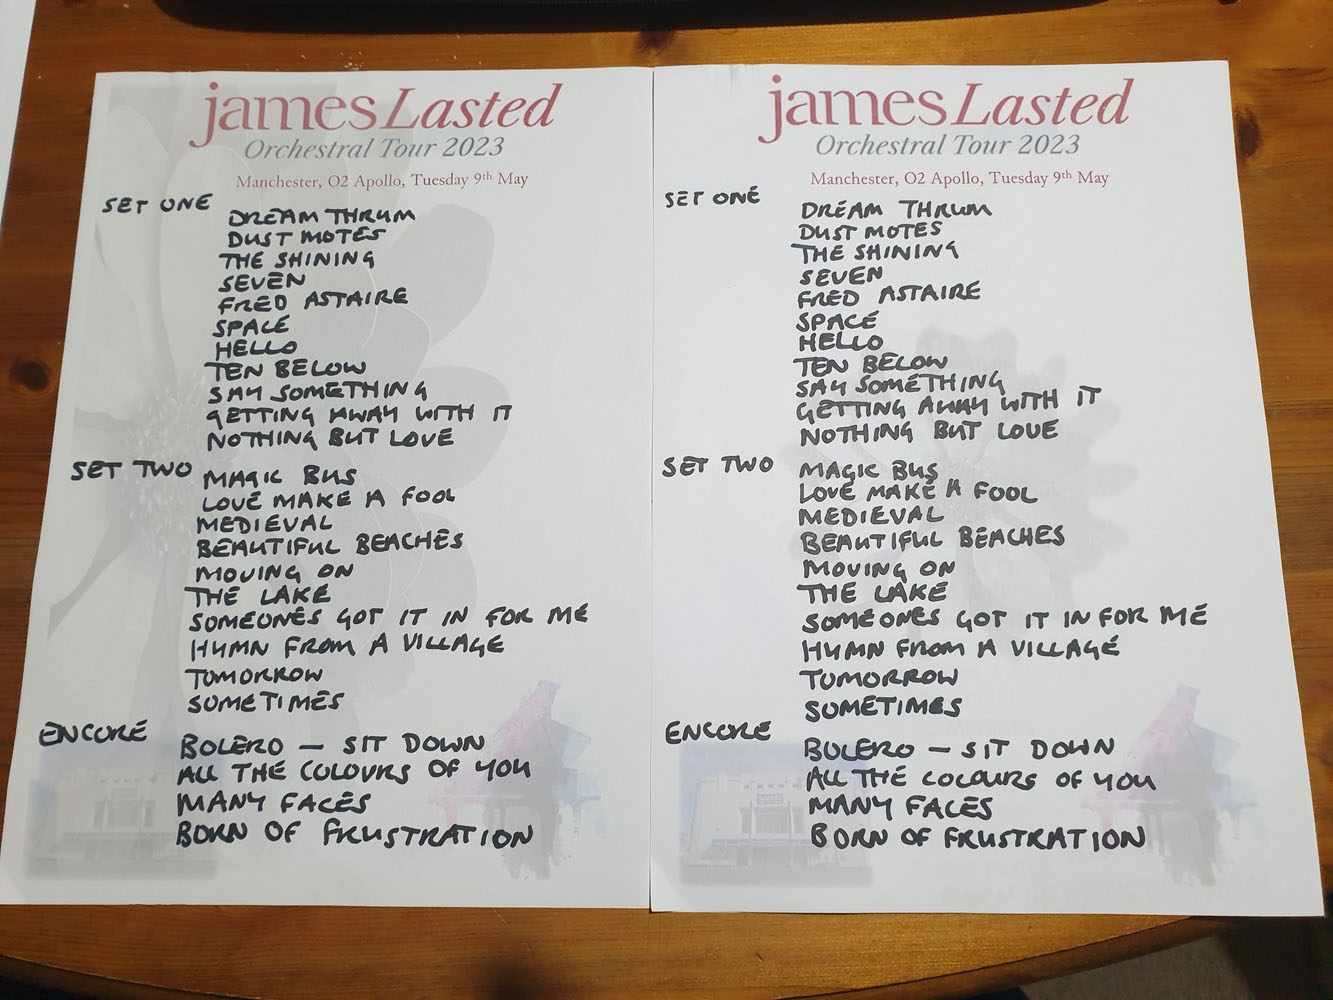 james Lasted
Orchestral Tour 2023
Manchester, O2 Apollo, Tuesday 9th May
SET ONE
DREAM THRUM
DUST MOTES
THE SHINING
SEVEN
FRED ASTAIRE
SPACE
HELLO
TEN BELOW
SAY SOMETHING
GETTING AWAY WITH IT
NOTHING BUT LOVE
SET TWO
MAGIC BUS
LOVE MAKE A FOOL
MEDIEVAL
BEAUTIFUL BEACHES
MOVING ON
THE LAKE
SOMEONES GOT IT IN FOR ME
HYMN FROM A VILLAGE
TOMORROW
SOMETIMES
ENCORE
BOLERO — SIT DOWN
ALL THE COLOURS OF YOU
MANY FACES
BORN OF FRUSTRATION
james Lasted
Orchestral Tour 2023
Manchester, O2 Apollo, Tuesday 9th May
SET ONE
DREAM THRUM
DUST MOTES
THE SHINING
SEVEN
FRED ASTAIRE
SPACE
HELLO
TEN BELOW
SAY SOMETHING
GETTING AWAY WITH IT
NOTHING BUT LOVE
SET TWO
MAGIC BUS
LOVE MAKE A FOOL
MEDIEVAL
BEAUTIFUL BEACHES
MOVING ON
THE LAKE
SOMEONES GOT IT IN FOR ME
HYMN FROM A VILLAGE
TOMORROW
SOMETIMES
ENCORE
BOLERO — SIT DOWN
ALL THE COLOURS OF YOU
MANY FACES
BORN OF FRUSTRATION